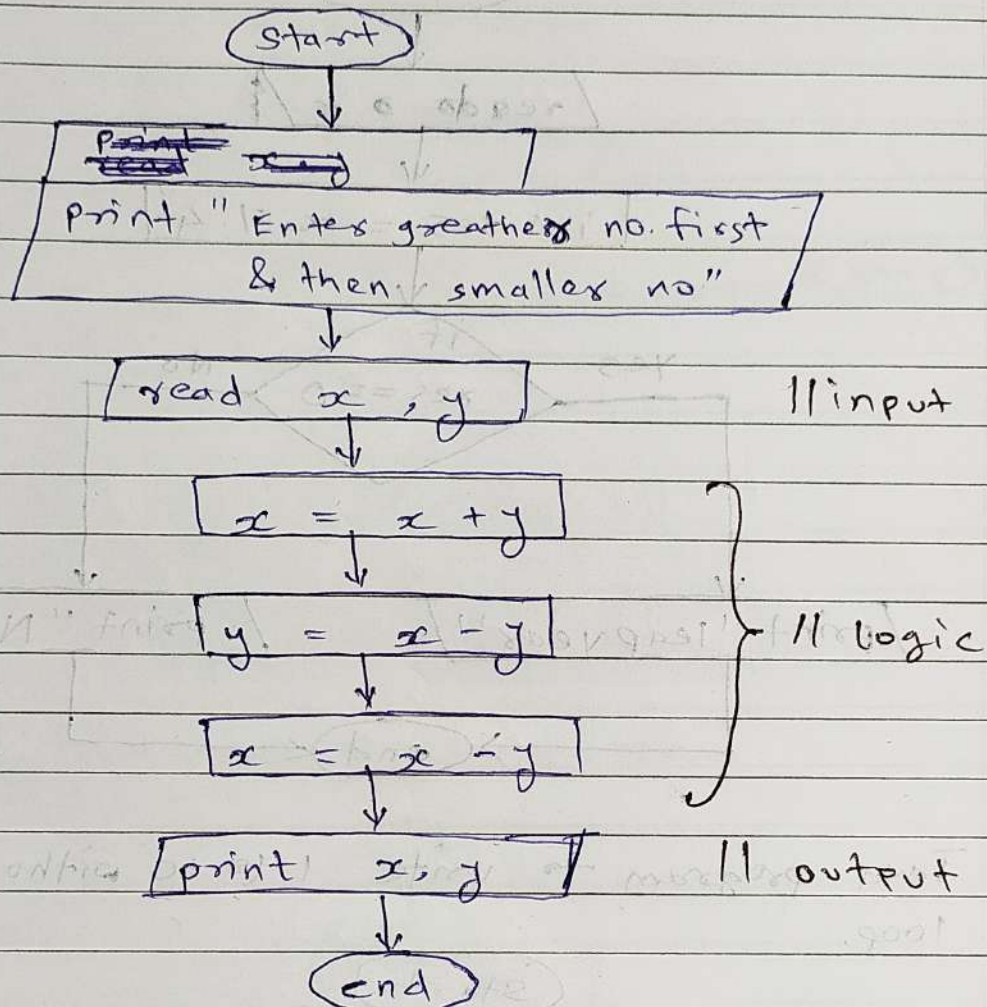 start
print
read x, y
print " Enter greather no. first
& then smaller no"
read x , y //input
x = x + y
y = x - y // logic
x = x - y
print x, y // output
end